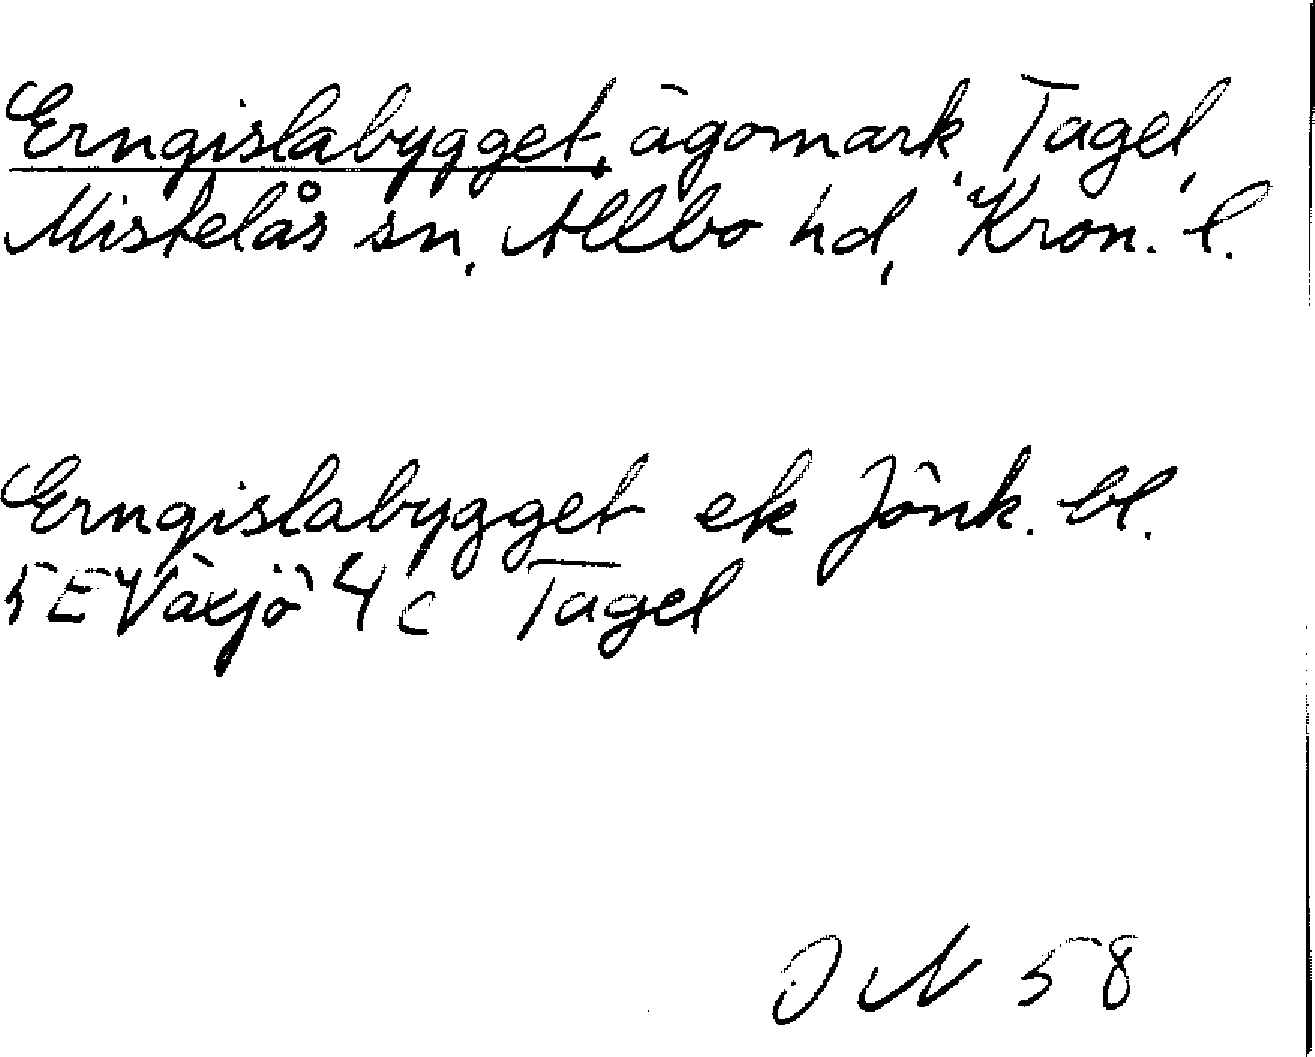 Erngislabygget, ägomark, Tagel,
Mistelås sn, Allbo hd, Kron. l.
Erngislabygget ek Jönk. bl.
5E Växjö 4c Tagel
58